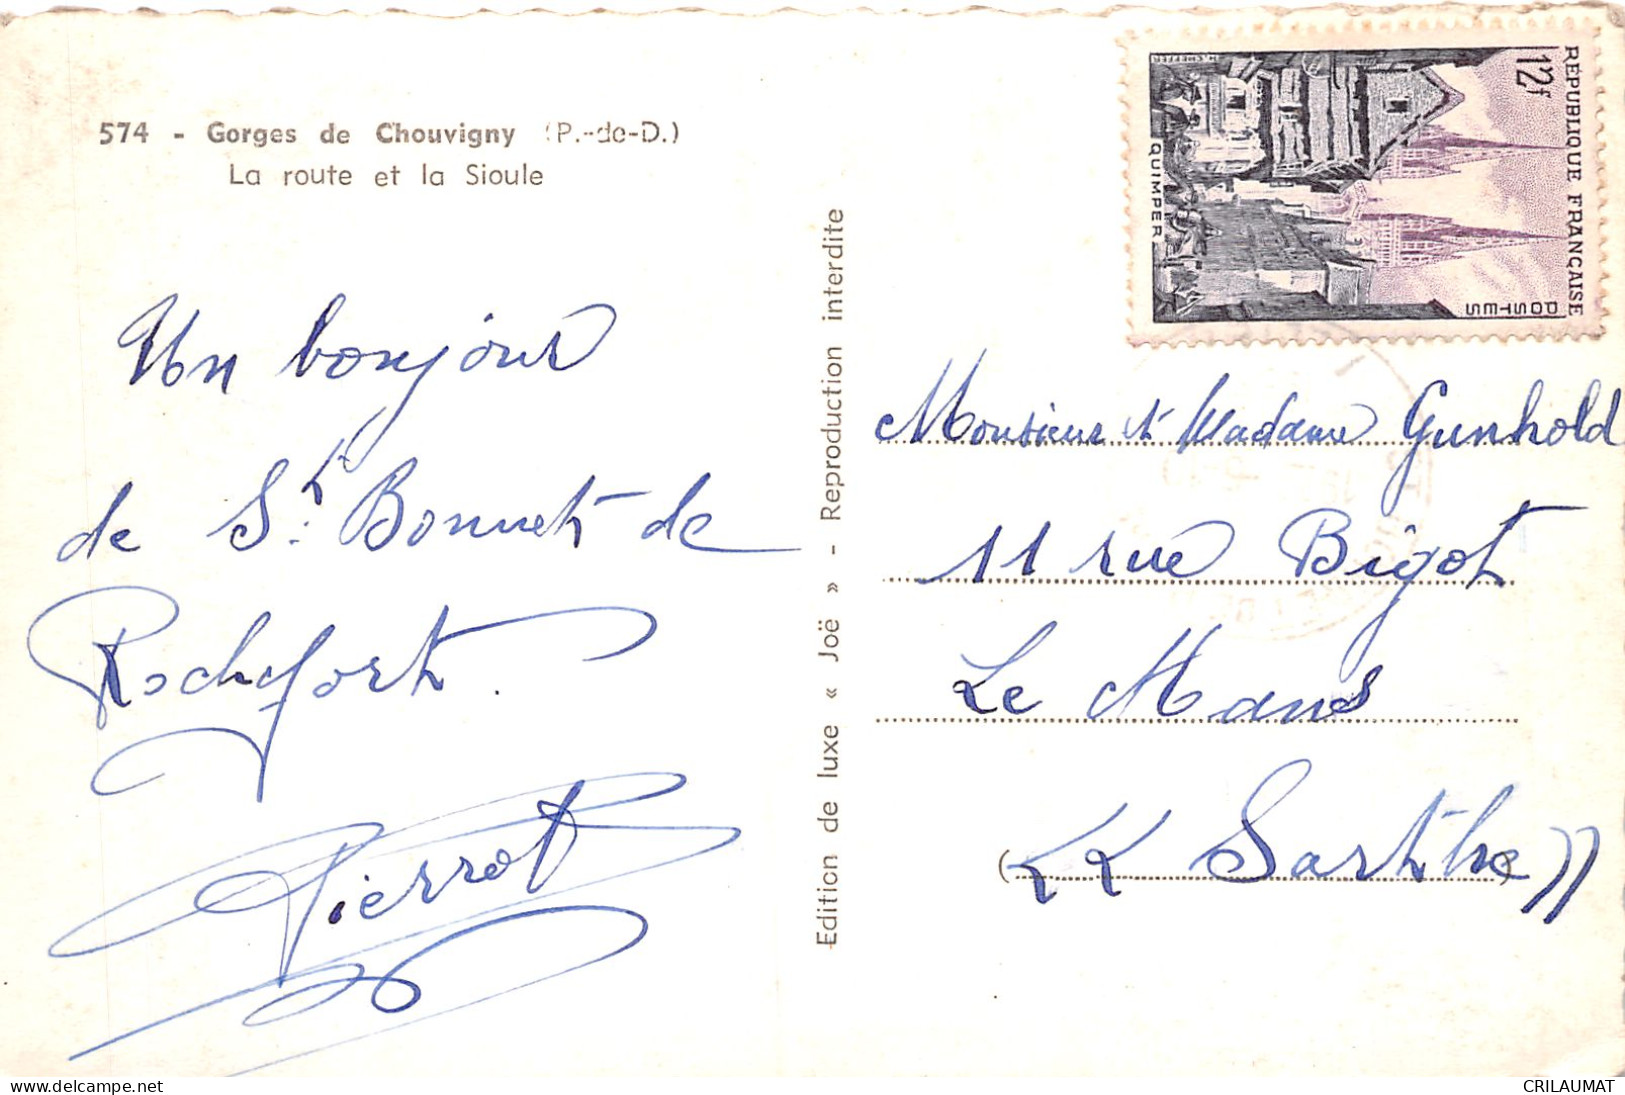 574 - Gorges de Chouvigny (P.-de-D.)
La route et la Sioule
Un bonjour
de St. Bonnet de
Rochefort.
Pierrot
Edition de luxe « Joë » - Reproduction interdite
RÉPUBLIQUE FRANÇAISE
12f
POSTES
QUIMPER
H. CHEFFER
Monsieur et Madame Gunhold
11 rue Bigot
Le Mans
(« Sarthe »)
delcampe.net
CRILAUMAT